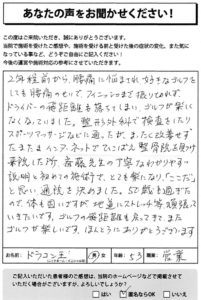 あなたの声をお聞かせください！
この度はご来院いただき、誠にありがとうございます。
当院で施術を受けたご感想や、施術を受ける前と受けた後の症状の変化、また気に
なっている事など、どうぞご自由にご記入ください！
今後の運営や施術対応の参考にさせていただきます。
2年程前から、腰痛に悩まされ、好きなゴルフをし
ても腰痛のせいで、フィニッシュまで振り切れず、
ドライバーの飛距離も落ちてしまい、ゴルフが楽しく
なくなっていました。整形外科で検査をしたり
スポーツマッサージなどに通ったが、まったく改善せず
たまたまインターネットでひこばえ整骨院を見つけ
来院した所、斎藤先生の丁寧なわかりやすい
説明と初めての施術で、とても楽になり、「ここだ」
と思い通院を決めました。50歳も過ぎた
ので、体も固いですが、地道にストレッチ等頑張って
いきたいです。ゴルフの飛距離も戻ってきて、また
ゴルフが楽しいです。ほんとうにありがとうございます
お名前 ドラゴン王 男・女 年齢 53 職業 営業
ご記入いただいた患者様のご感想は、当院のホームページなどで掲載させて
いただく場合がございますが、よろしいでしょうか？
はい ✓匿名ならOK いいえ